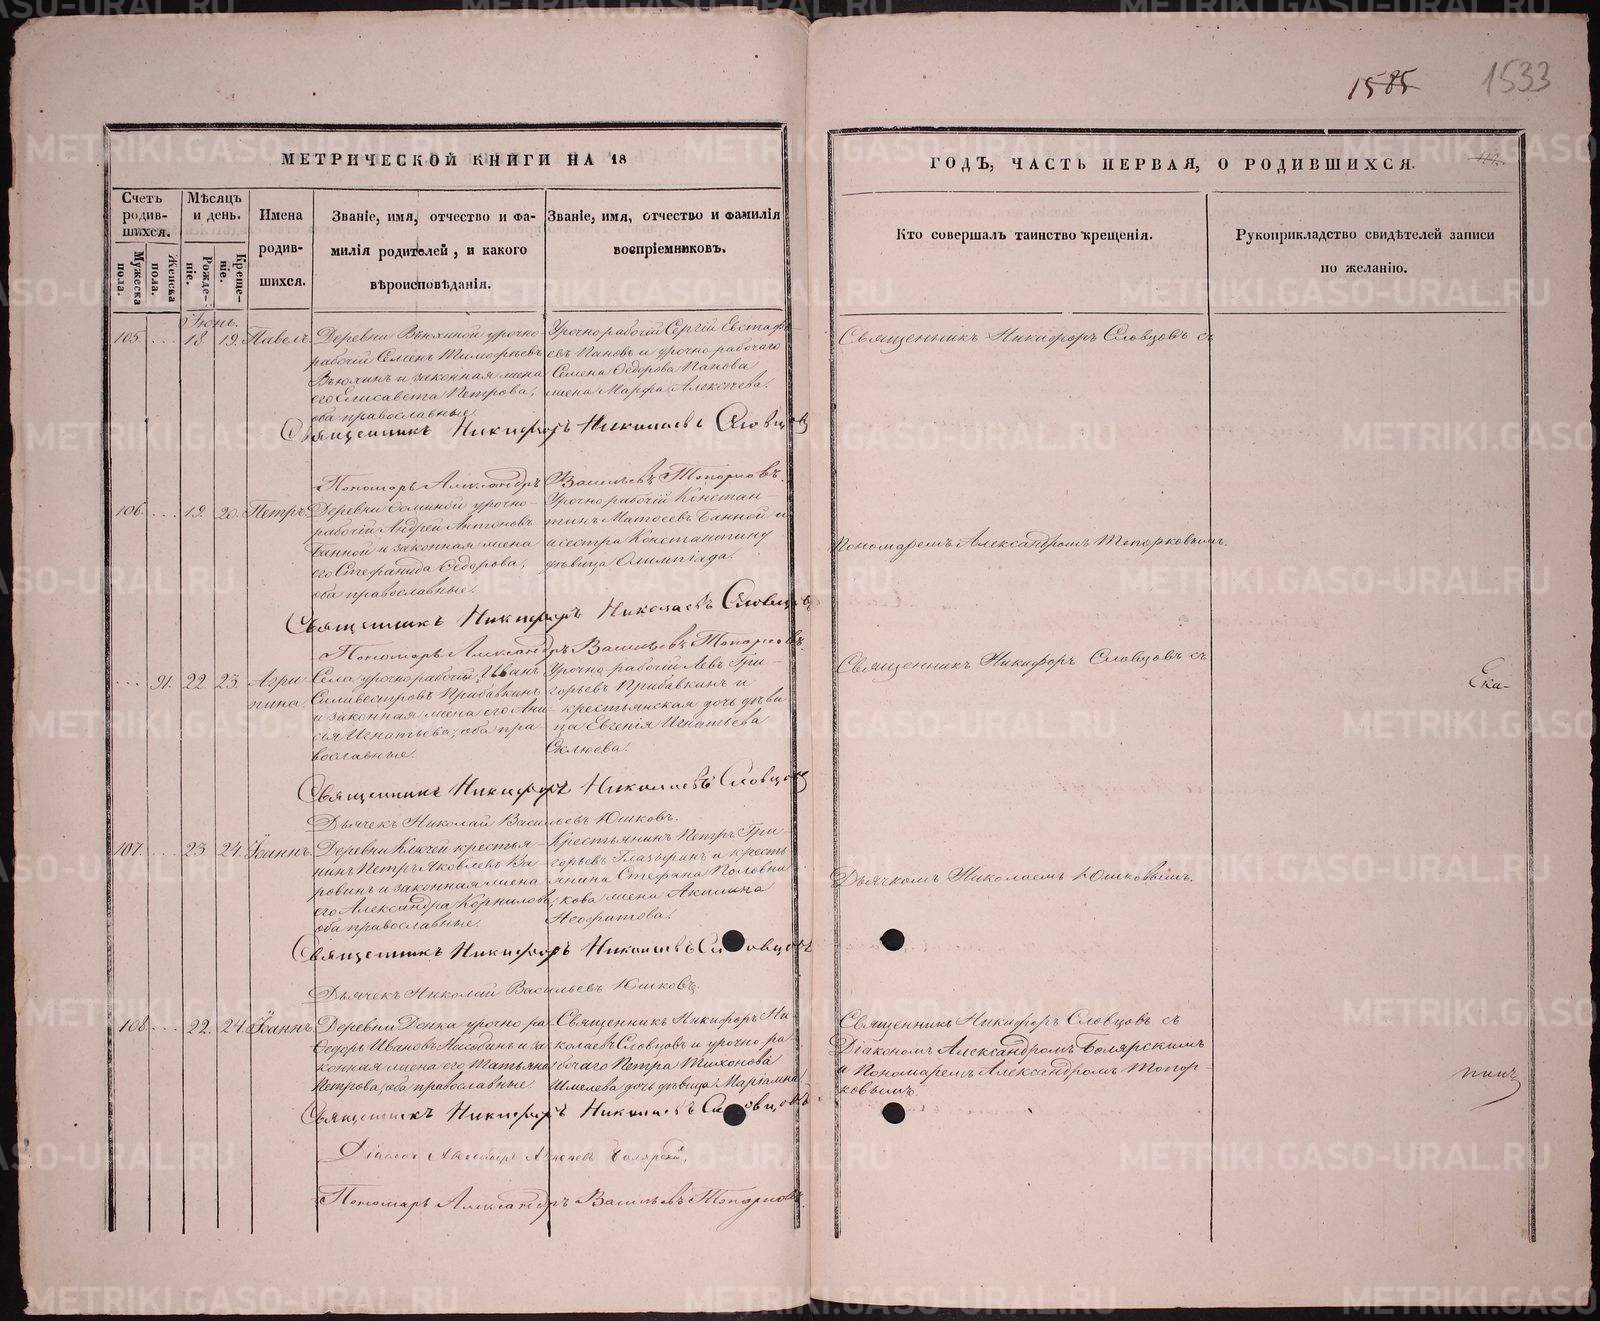 1585 1533
МЕТРИЧЕСКОЙ КНИГИ НА 18
Счетъ родившихся.
Мужеска пола.
Женска пола.
Мѣсяцъ и день.
Рожденіе.
Крещеніе.
Имена родившихся.
Званіе, имя, отчество и фамилія родителей, и какого вѣроисповѣданія.
Званіе, имя, отчество и фамилія воспріемниковъ.
Іюнь.
105. 18 19. Павелъ.
Деревни Вьюхиной урочно-
рабочій Семенъ Тимофѣевъ
Вьюхинъ и законная жена
его Елисавета Петрова,
оба православные.
Урочнорабочій Сергій Евстафь-
евъ Пановъ и урочнорабочаго
Семена Ѳедорова Панова
жена Марфа Алексѣева.
Священникъ Никифоръ Николаевъ Словцовъ
Пономарь Александръ Васильевъ Топорковъ.
106. 19. 20. Петръ.
Деревни урочно-
рабочій Андрей Антоновъ
Банной и законная жена
его Стефанида Ѳедорова,
оба православные.
Урочнорабочій Констан-
тинъ Матѳеевъ Банной и
сестра Константину
дѣвица Олимпіада.
Священникъ Никифоръ Николаевъ Словцовъ
Пономарь Александръ Васильевъ Топорковъ.
91. 22 23. Агри-
пина.
Села урочнорабочій Иванъ
Силивестровъ Прибавкинъ
и законная жена его Ани-
сья Игнатьева, оба пра-
вославные.
Урочно-рабочій Левъ Гри-
горьевъ Прибавкинъ и
крестьянская дочь дѣви-
ца Евгенія Игнатьева
Священникъ Никифоръ Николаевъ Словцовъ
Дьячекъ Николай Васильевъ Юшковъ.
107. 23. 24. Іоаннъ.
Деревни Ключей крестья-
нинъ Петръ Яковлевъ Ва-
ровинъ и законная жена
его Александра Корнилова,
оба православные.
Крестьянинъ Петръ Гри-
горьевъ Глазыринъ и кресть-
янина Стефана Половни-
кова жена Акилина
Неофитова.
Священникъ Никифоръ Николаевъ Словцовъ
Дьячекъ Николай Васильевъ Юшковъ.
108. 22. 24. Іоаннъ.
Деревни Донка урочно ра-
Ѳедоръ Ивановъ и за-
конная жена его Татьяна
Петрова, оба православные
Священникъ Никифоръ Ни-
колаевъ Словцовъ и урочно ра-
бочаго Петра Тихонова
Шмелева дочь дѣвица Маріамна.
Священникъ Никифоръ Николаевъ Словцовъ
Діаконъ Александръ Болярскій.
Пономарь Александръ Васильевъ Топорковъ.
ГОДЪ, ЧАСТЬ ПЕРВАЯ, О РОДИВШИХСЯ.
Кто совершалъ таинство крещенія.
Рукоприкладство свидѣтелей записи по желанію.
Священникъ Никифоръ Словцовъ съ
Пономаремъ Александромъ Топорковымъ.
Священникъ Никифоръ Словцовъ съ
Ека-
Дьячкомъ Николаемъ Юшковымъ.
Священникъ Никифоръ Словцовъ съ
Діакономъ Александромъ Болярскимъ
и Пономаремъ Александромъ Топор-
ковымъ.
METRIKI.GASO-URAL.RU